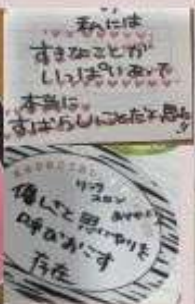 私には
すきなことが
いっぱいあって
本当に
すばらしいことだと思う
優しさと思いやりを
呼びおこす
存在